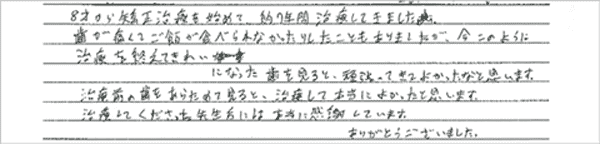 8才から矯正治療を始めて、約7年間治療してきました。
歯が痛くてご飯が食べられなかったりしたこともありましたが、今このように
治療を終えてきれい
になった歯を見ると、頑張ってきてよかったなと思います
治療前の歯をあらためて見ると、治療して本当によかったと思います
治療してくださった先生方には本当に感謝しています。
ありがとうございました。